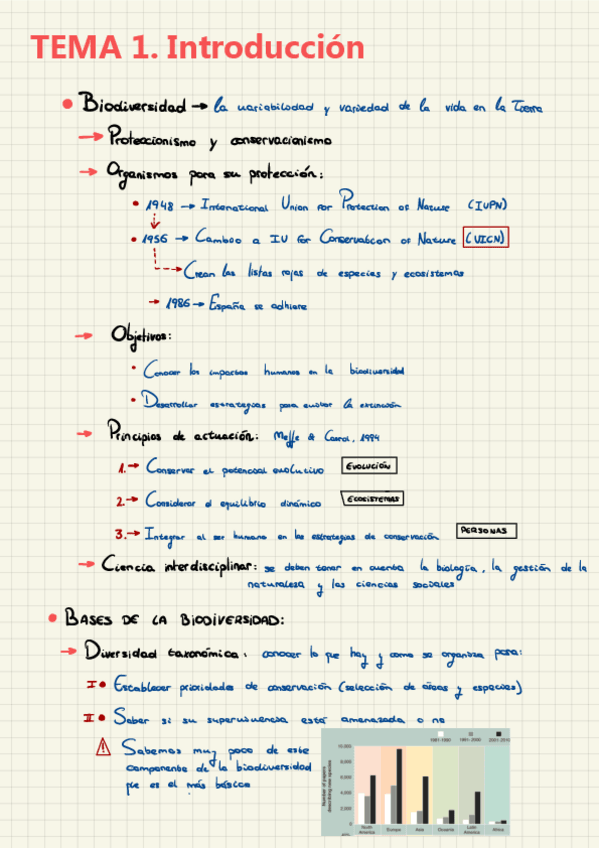 TEMA 1. Introducción
Biodiversidad → la variabilidad y variedad de la vida en la Tierra
→ Proteccionismo y conservacionismo
→ Organismos para su protección:
1948 → International Union for Protection of Nature (IUPN)
1956 → Cambio a IU for Conservation of Nature (UICN)
Crean las listas rojas de especies y ecosistemas
→ 1986 → España se adhiere
→ Objetivos:
Conocer los impactos humanos en la biodiversidad
Desarrollar estrategias para evitar la extinción
→ Principios de actuación: Meffe & Carrol, 1994
1. → Conservar el potencial evolutivo EVOLUCIÓN
2. → Considerar el equilibrio dinámico ECOSISTEMAS
3. → Integrar al ser humano en las estrategias de conservación PERSONAS
→ Ciencia interdisciplinar: se deben tener en cuenta la biología, la gestión de la
naturaleza y las ciencias sociales
BASES DE LA BIODIVERSIDAD:
→ Diversidad taxonómica: conocer lo que hay y como se organiza para:
I Establecer prioridades de conservación (selección de áreas y especies)
II Saber si su supervivencia está amenazada o no
Sabemos muy poco de este
componente de la biodiversidad
que es el más básico
1981-1990 1991-2000 2001-2010
Number of papers
describing new species
10,000
8,000
6,000
4,000
2,000
0
South America Europe Asia Oceania Latin America Africa